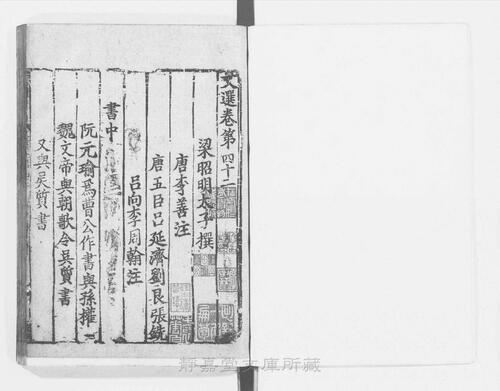 文選卷第四十二
梁昭明太子撰
唐李善注
唐五臣呂延濟劉良張銑
呂向李周翰注
書中
阮元瑜爲曹公作書與孫權
魏文帝與朝歌令吳質書
又與吳質書
靜嘉堂文庫所藏